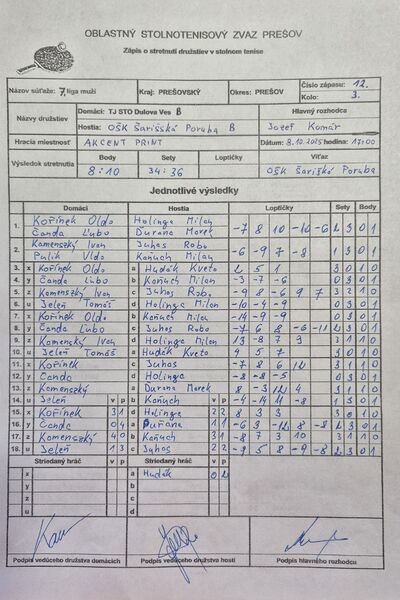 OBLASTNÝ STOLNOTENISOVÝ ZVAZ PREŠOV
Zápis o stretnutí družstiev v stolnom tenise
Názov súťaže: 7. liga muži Kraj: PREŠOVSKÝ Okres: PREŠOV Číslo zápasu: 12.
Kolo: 3.
Názvy družstiev Domáci: TJ STO Dulova Ves B Hlavný rozhodca
Hostia: OŠK Šarišská Poruba B Jozef Komár
Hracia miestnosť AKCENT PRINT Dátum: 8.10.2025 hodina: 17:00
Výsledok stretnutia Body Sety Loptičky Víťaz
8:10 34:36 OŠK Šarišská Poruba
Jednotlivé výsledky
Domáci Hostia Loptičky Sety Body
1. Kořínek Oldo Holinga Milan -7 8 10 -10 -6 2 3 0 1
Čanda Ľubo Durana Marek
2. Komenszký Ivan Juhos Robo -6 -9 7 -8 1 3 0 1
Pulik Vlado Kaňuch Milan
3. x Kořínek Oldo a Hudák Kveto 2 5 1 3 0 1 0
4. y Čanda Ľubo b Kaňuch Milan -3 -7 -6 0 3 0 1
5. z Komenszký Ivan c Juhos Robo -9 8 -6 9 7 3 2 1 0
6. u Jeleň Tomáš d Holinga Milan -10 -4 -9 0 3 0 1
7. x Kořínek Oldo b Kaňuch Milan -14 -9 -9 0 3 0 1
8. y Čanda Ľubo c Juhos Robo -7 6 8 -6 -11 2 3 0 1
9. z Komenský Ivan d Holinga Milan 13 -8 7 9 3 1 1 0
10. u Jeleň Tomáš a Hudák Kveto 9 5 7 3 0 1 0
11. x Kořínek c Juhos -7 8 6 12 3 1 1 0
12. y Čanda d Holinga -8 -8 -5 0 3 0 1
13. z Komenszký a Durana Marek 8 -3 12 4 3 1 1 0
14. u Jeleň v p b Kaňuch v p -4 -14 11 -8 1 3 0 1
15. x Kořínek 3 1 d Holinga 2 2 8 3 3 3 0 1 0
16. y Čanda 0 4 a Ďurana 1 1 -6 3 -12 8 -8 2 3 0 1
17. z Komenszký 4 0 b Kaňuch 3 1 -8 7 3 10 3 1 1 0
18. u Jeleň 1 3 c Juhos 2 2 -9 5 8 -9 -8 2 3 0 1
Striedaný hráč v p Striedaný hráč v p
x a Hudák 0 2
y b
z c
u d
Podpis vedúceho družstva domácich Podpis vedúceho družstva hostí Podpis hlavného rozhodcu